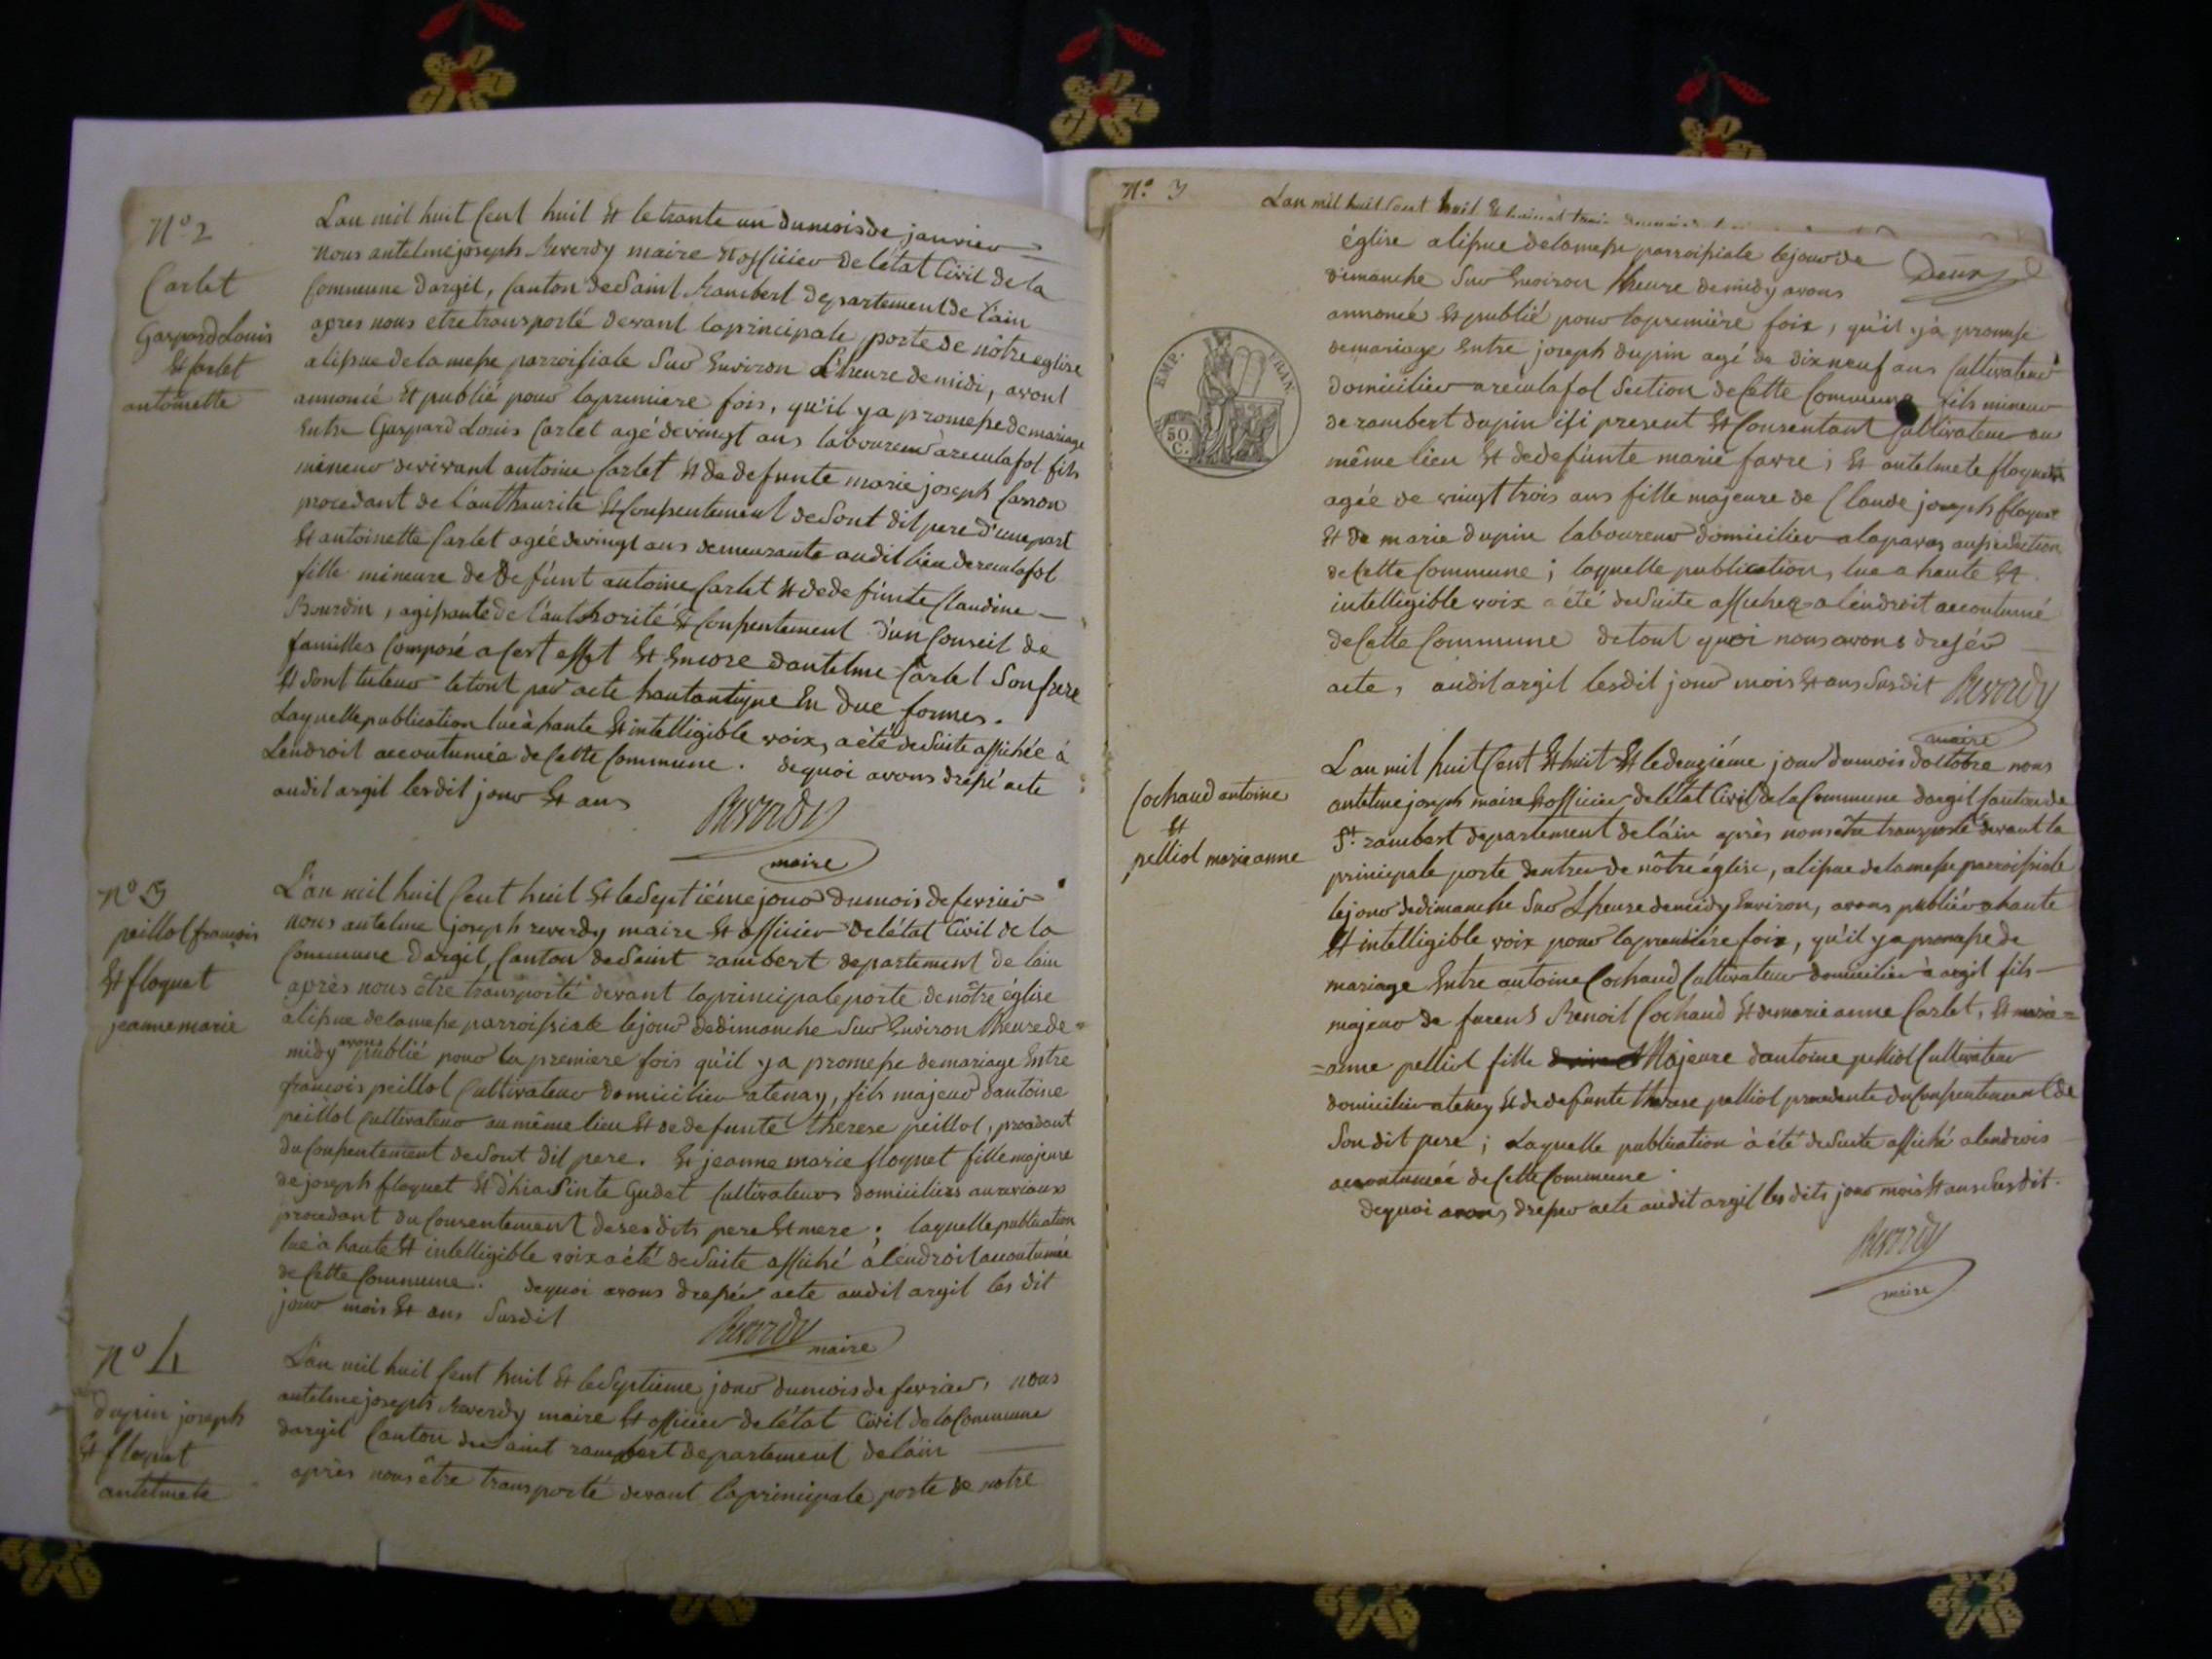 N° 2
Carlet
Gaspard Louis
Et Carlet
antoinette
L'an mil huit Cent huit Et le trante un du mois de janvier
nous antelme joseph Reverdy maire Et officier de l'état Civil de la
Commune d'argil, Canton de Saint Rambert departement de l'ain
apres nous etre transporté devant la principale porte de nôtre eglise
a lissue de la messe parroissiale Sur Environ L'heure de midi, avont
annoncé Et publié pour la premiere fois, qu'il y a promesse de mariage
Entre Gaspard Louis Carlet agé de vingt ans laboureur a reculafol fils
mineur de vivant antoine Carlet Et de defunte marie joseph Carron
procedant de l'authaurite Et Conssentement de Sont dit pere d'une part
Et antoinette Carlet agée de vingt ans demeurante au dit lieu de reculafol
fille mineure de Defunt antoine Carlet Et de defunte Claudine
Bourdin, agissante de l'authorité Et Conssentement d'un Conseil de
familles Composé a Cest effet Et Encore dantelme Carlet Son frere
Et Sont tuteur le tout par acte hautantique En due formes.
Laquelle publication lue à haute Et intelligible voix, a été de Suite affichée à
Lendroit accoutuméa de Cette Commune. de quoi avons dressé acte
audit argil lesdit jour Et ans
Reverdy
maire
N° 3
peillot francois
Et floquet
jeanne marie
L'an mil huit Cent huit Et le Septiéme jour du mois de fevrier
nous antelme joseph reverdy maire Et officier de l'état Civil de la
Commune D'argil Canton de Saint rambert departement de lain
après nous être transporté devant la principale porte de nôtre église
alissue de la messe parroissiale le jour de dimanche Sur Environ lheure de
midy avons publié pour la premiere fois qu'il y a promesse de mariage Entre
francois peillot Cultivateur domicilier a tenay, fils majeur dantoine
peillot Cultivateur au même lieu Et de defunte therese peillot, procedant
du Conssentement de Sont dit pere. Et jeanne marie floquet fille majeure
de joseph floquet Et d'hiasinte Gudet Cultivateurs domiciliers
procedant du Consentement de ses dits pere Et mere; laquelle publication
lue à haute Et intelligible voix a été de Suite affiché à léndroit accoutumée
de Cette Commune. de quoi avons dressér acte audit argil les dit
jour mois Et ans Susdit
Reverdy maire
N° 4
dupin joseph
Et floquet
antelmete
L'an mil huit Cent huit Et le Septieme jour du mois de fevrier, nous
antelme joseph Reverdy maire Et officier de l'état Civil de la Commune
dargil Canton de Saint rambert departement de láin
après nous être transporté devant la principale porte de notre
N° 3
L'an mil huit Cent huit Et
Deux
église alissue de la messe parroissiale le jour de
dimanche Sur Environ lheure de midy avons
annoncé Et publié pour la première foix, qu'il y à promesse
de mariage Entre joseph dupin agé de dix neuf ans Cultivateur
domicilier a reculafol Section de Cette Commune fils mineur
de rambert dupin isi present Et Consentant Cultivateur au
même lieu Et de defunte marie favre; Et antelmete floquet
agée de vingt trois ans fille majeure de Claude joseph floquet
Et de marie dupin laboureur domicilier section
de Cette Commune; laquelle publication, lue a haute Et
intelligible voix a été de Suite affichez a léndroit accoutumé
de Cette Commune de tout quoi nous avons dressér
acte, audit argil lesdit jour mois Et ans Susdit Reverdy
maire
EMP. FRAN
50 C.
Cochaud antoine
Et
pelliot marie anne
L'an mil huit Cent Et huit Et le deuziéme jour du mois d'octobre nous
antelme joseph maire Et officier de létat Civil de la Commune dargil Canton de
St. rambert departement de láin après nous être transporté devant la
principale porte dentrer de nôtre église, alissue de la messe parroissiale
le jour de dimanche Sur Lheure de midy Environ, avons publiér a haute
Et intelligible voix pour la premiére foix, qu'il y a promesse de
mariage Entre antoine Cochaud Cultivateur domicilier à argil fils
majeur de Benoit Cochaud Et de marie anne Carlet, Et marie=
=anne pelliot fille Majeure dantoine pelliot Cultivateur
domicilier a tenay Et de defunte therese pelliot procedente du Conssentement de
Son dit pere; Laquelle publication à été de Suite affiché a lendrois
accoutumée de Cette Commune.
de quoi avons dresser acte audit argil les dits jour mois Et ans Susdit.
Reverdy
maire